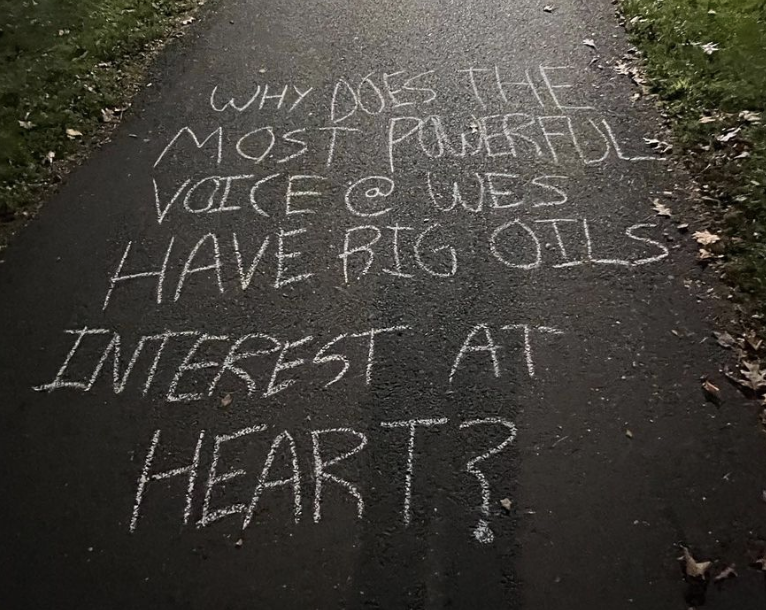 WHY DOES THE
MOST POWERFUL
VOICE @ WES
HAVE BIG OILS
INTEREST AT
HEART?